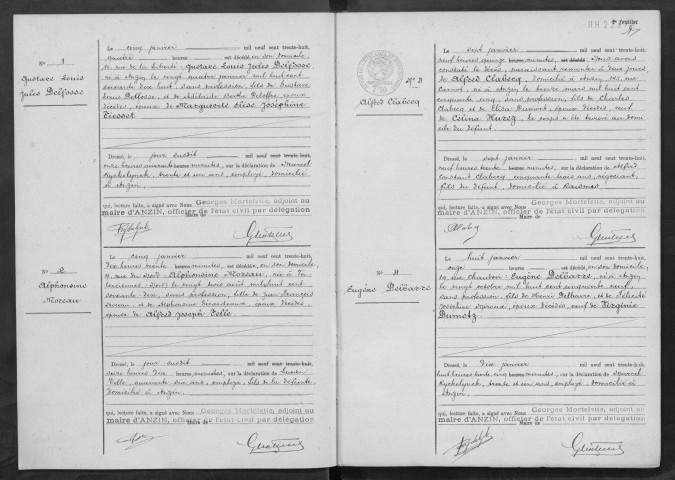 N° 1
Gustave Louis
Jules Delfosse
Le cinq janvier mil neuf cent trente-huit,
heures est décédé, en son domicile,
rue de la Liberté: Gustave Louis Jules Delfosse
né à Anzin le vingt quatre janvier mil huit cent
soixante dix huit, sans profession, fils de Gustave
Louis Delfosse et de Adélaïde Berthe Deloffre, époux
décédés, époux de Marguerite Élise Joséphine
Piessot
Dressé, le jour susdit mil neuf cent trente-huit,
onze heures quarante minutes, sur la déclaration de Marcel
Kychelynck, trente et un ans, employé, domicilié
à Anzin
qui, lecture faite, a signé avec Nous Georges Mortelette, adjoint au
maire d'ANZIN, officier de l'état civil par délégation
Maire de
N° 2
Alphonsine
Moreau
Le cinq janvier mil neuf cent trente-huit,
dix heures trente minutes, est décédée, en son domicile,
9, rue du Nord: Alphonsine Moreau, née à Va-
lenciennes (Nord) le vingt trois août mil huit cent
soixante dix, sans profession, fille de Jean François
Moreau, et de Alphonsine Gérardeaux, époux décédés,
épouse de Alfred Joseph Telle
Dressé, le jour susdit mil neuf cent trente-huit,
seize heures dix minutes, sur la déclaration de
Telle, quarante six ans, employé, fils de la défunte,
domicilié à Anzin
qui, lecture faite, a signé avec Nous Georges Mortelette, adjoint au
maire d'ANZIN, officier de l'état civil par délégation
Maire de
feuillet
N° 3
Alfred Clabecq
Le sept janvier mil neuf cent trente-huit,
neuf heures quinze minutes, est décédé Nous avons
constaté le décès, paraissant remonter à deux jours
de Alfred Clabecq, domicilié à Anzin, rue
Carnot, né à Anzin le treize mars mil huit cent
cinquante cinq, sans profession, fils de Charles
Clabecq et de Elisa Dumont, époux décédés, veuf
de Célina Hurez, le corps a été trouvé au domi-
cile du défunt.
Dressé, le sept janvier mil neuf cent trente-huit,
neuf heures trente minutes, sur la déclaration de Alfred
Constant Clabecq, cinquante trois ans, négociant,
fils du défunt, domicilié à Raismes
qui, lecture faite, a signé avec Nous Georges Mortelette, adjoint au
maire d'ANZIN, officier de l'état civil par délégation
Maire de
N° 4
Eugène Delbarre
Le huit janvier mil neuf cent trente-huit,
onze heures minutes, est décédé, en son domicile,
rue Chaudon: Eugène Delbarre, né à Anzin
le vingt octobre mil huit cent cinquante neuf,
sans profession, fils de Henri Delbarre, et de Félicité
Joséphine époux décédés, veuf de Virginie
Dumetz
Dressé, le dix janvier mil neuf cent trente-huit,
huit heures trente cinq minutes, sur la déclaration de Marcel
Kychelynck, trente et un ans, employé, domicilié à
Anzin
qui, lecture faite, a signé avec Nous Georges Mortelette, adjoint au
maire d'ANZIN, officier de l'état civil par délégation
Maire de